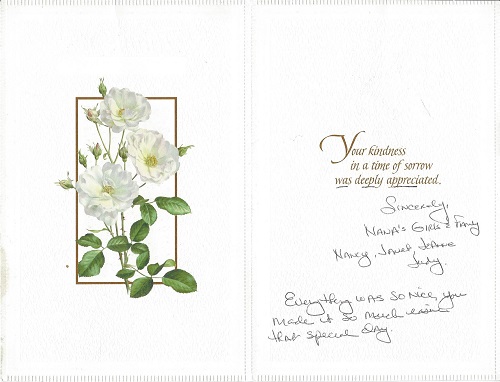 Your kindness
in a time of sorrow
was deeply appreciated.
Sincerely,
NANA'S Girls & Family
Nancy, Janet
Judy.
Everything was so nice, you
made it so much easier
that special day.